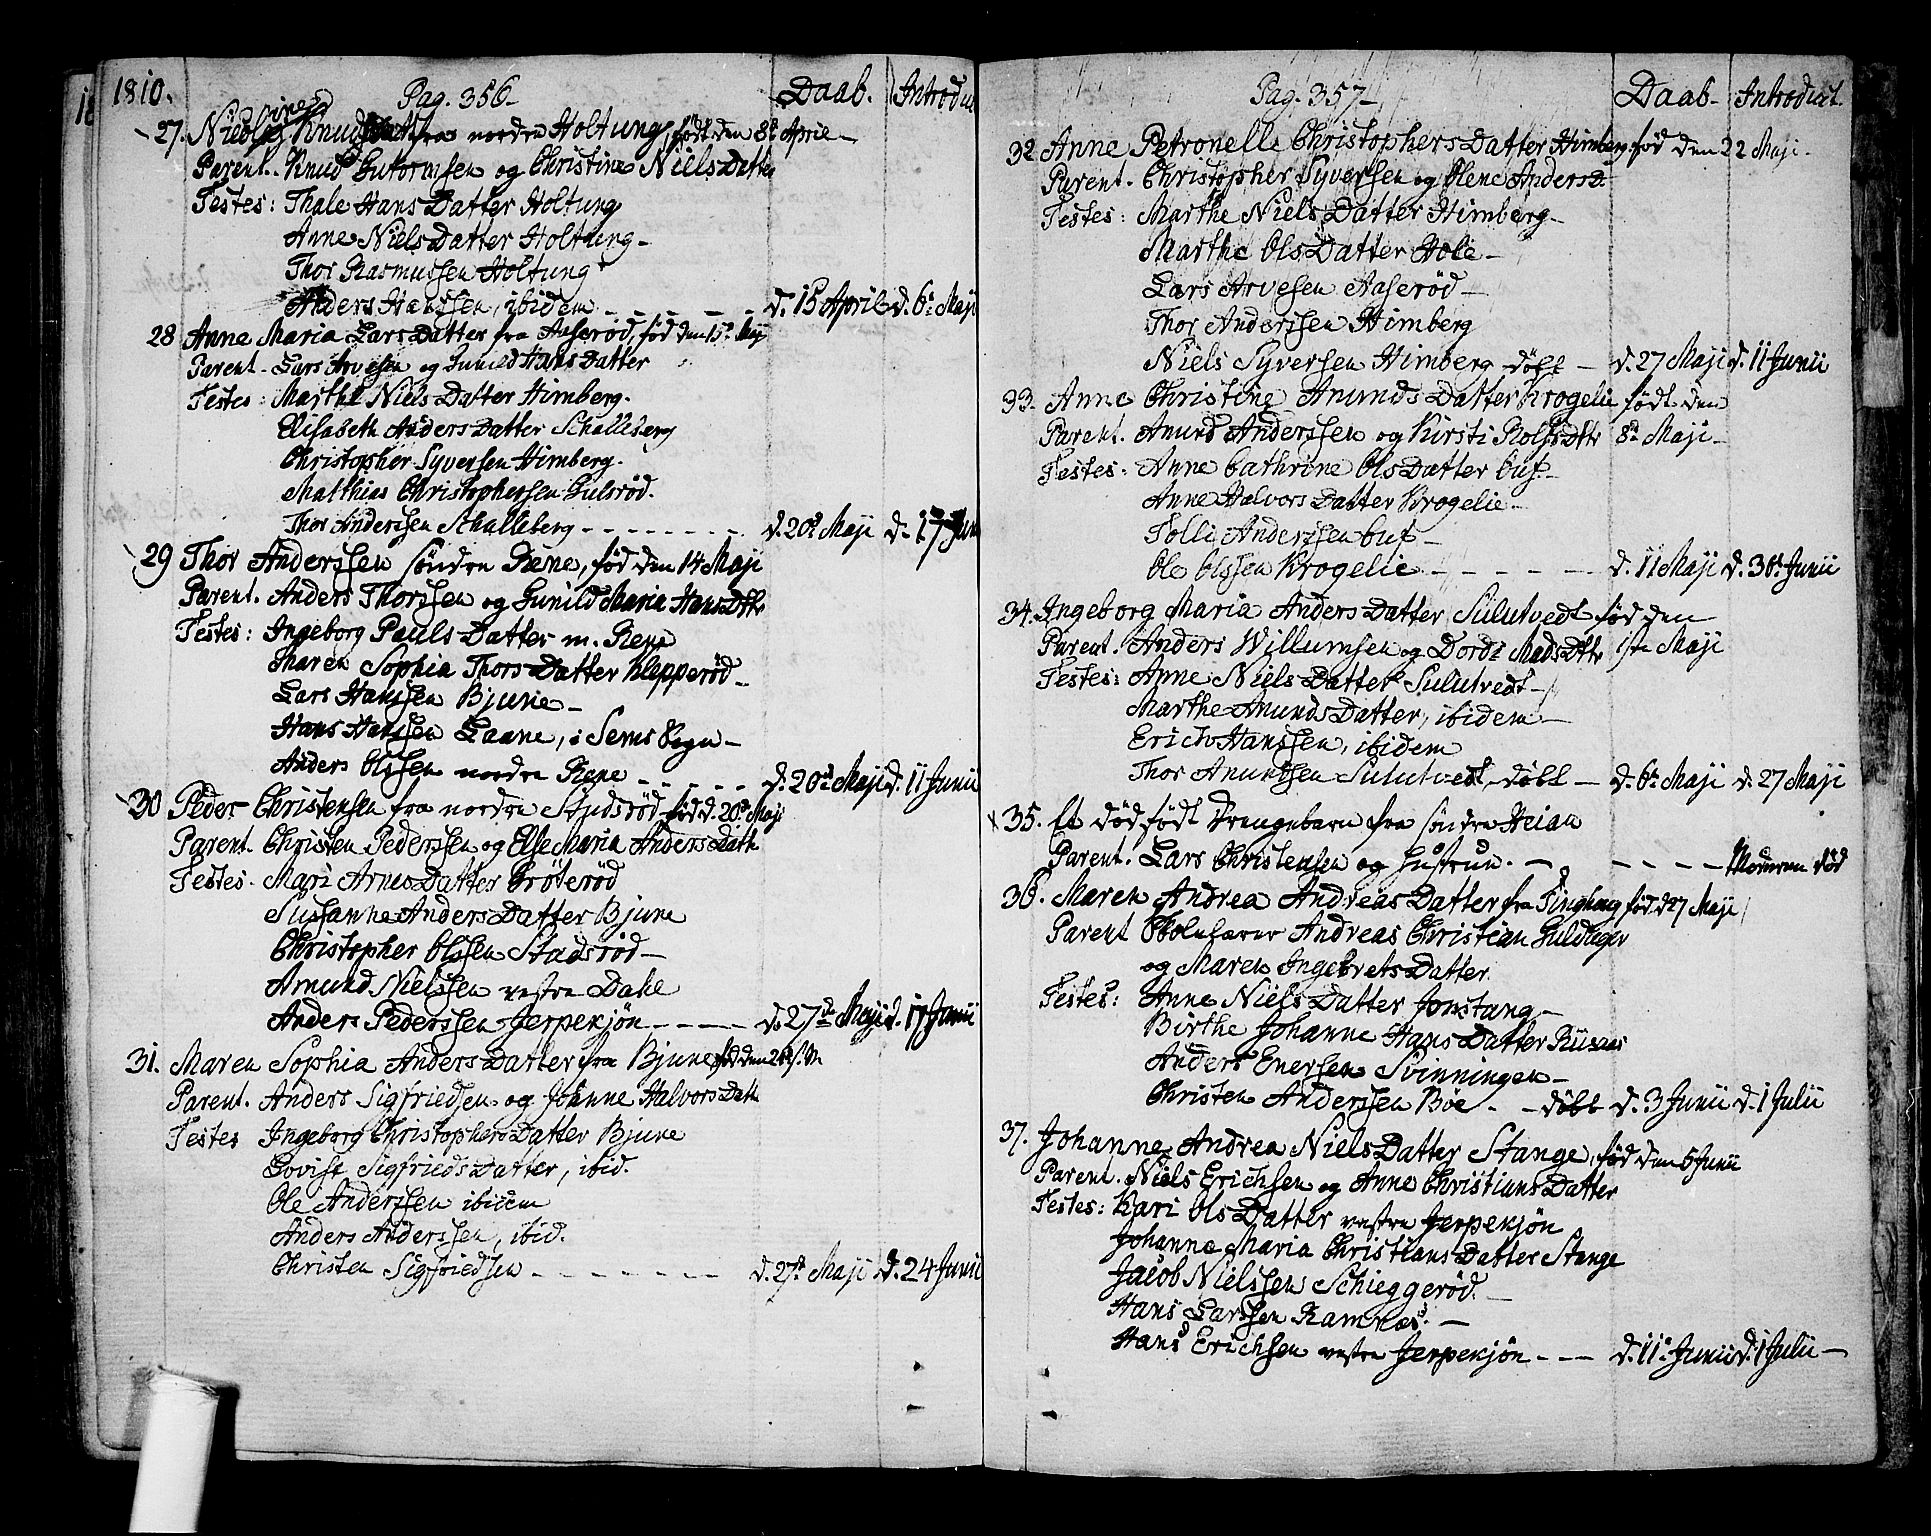 1810. Pag. 356 Daab. Introduct
27. Knuds fra nordre Holtung, født den 8de April
Parent. Knud Gutormsen og Christine NielsDatter
Testes: Thale HansDatter Holtung
Anne NielsDatter Holtung
Thor Rasmussen Holtung
Anders Hanssen, ibidem d. 15 April d. 6te Maji
28 Anne Maria LarsDatter fra Aaserød, fød den 15de Maji
Parent. Lars Arvesen og Gunild HansDatter
Testes: Marthe NielsDatter Himberg.
Elisabeth AndersDatter Schalleberg
Christopher Syversen Himberg.
Matthias Christophersen Gulsrød.
Thor Anderssen Schalleberg d. 20de Maji d. 17 Jun
29 Thor Anderssen søndre Rene, fød den 14 Maji
Parent. Anders Thorssen og Gunild Maria HansDttr
Testes: Ingeborg PaulsDatter m. Rene
Maren Sophia ThorsDatter Klepperød
Lars Hanssen Bjune
Hans Hanssen Laane, i Sems Sogn
Anders Olssen nordre Rene d. 20de Maji d. 11 Junii
30 Peder Christensen fra nordre Stusrød fød d. 20de Maji
Parent. Christen Pederssen og Else Maria AndersDatt
Testes. Mari ArnesDatter Grøterød
Susanne AndersDatter Bjune
Christopher Olssen Stusrød
Amund Nielssen vestre Dahl
Anders Pederssen Jerpekjøn d. 27de Maji d. 17 Junii
31. Maren Sophia AndersDatter fra Bjune fød den
Parent. Anders Sigfriedsen og Johanne HalvorsDatt
Testes Ingeborg ChristophersDatter Bjune
Lovise SigfriedsDatter, ibid.
Ole Anderssen ibidem
Anders Anderssen, ibid.
Christen Sigfriedsen d. 27de Maji d. 24 Junii
Pag. 357 Daab Introduct.
32 Anne Petronelle ChristophersDatter Himberg fød den 22 Maji
Parent. Christopher Syversen og Olene AndersD.
Testes: Marthe NielsDatter Himberg
Marthe OlsDatter Hole
Lars Arvesen Aaserød
Thor Anderssen Himberg
Niels Syversen Himberg døbt d. 27 Maji d. 11 Junii
33. Anne Christine AmundsDatter Krogelie født den
Parent. Amund Anderssen og Kirsti RolfsDttr 8de Maji
Testes: Anne Cathrine OlsDatter Buf
Anne HalvorsDatter Krogelie
Tolli Anderssen Buf
Ole Olssen Krogelie d. 11 Maji d. 30te Junii
34. Ingeborg Maria AndersDatter Sulutvedt fød den
Parent. Anders Willumsen og Dorde MadsDttr 1ste Maji
Testes: Anne NielsDatter Sulutvedt
Marthe AmundsDatter, ibidem
Erich Hanssen, ibidem
Thor Amundsen Sulutvedt døbt d. 6te Maji d. 27 Maji
x 35. Et død født Drengebarn fra søndre Heian
Parent. Lars Christensen og Hustrue. Moderen død
36. Maren Andrea AndreasDatter fra Tinghoug fød d. 27 Maji
Parent Skolelærer Andreas Christian Guldager
og Maren IngebretsDatter
Testes: Anne NielsDatter Jonstang
Birthe Johanne HansDatter Rusnes
Anders Enersen Svinningen
Christen Anderssen Bøe døbt d. 3 Junii d. 1 Julii
37. Johanne Andrea NielsDatter Stange, fød den 5 Junii
Parent. Niels Erichsen og Anne ChristiansDatter
Testes: Kari OlsDatter vestre Jerpekjøn
Johanne Maria ChristiansDatter Stange
Jacob Nielssen Schieggerød.
Hans Larssen Ramnæs.
Hans Erichsen vestre Jerpekjøn d. 11te Junii d. 1 Julii